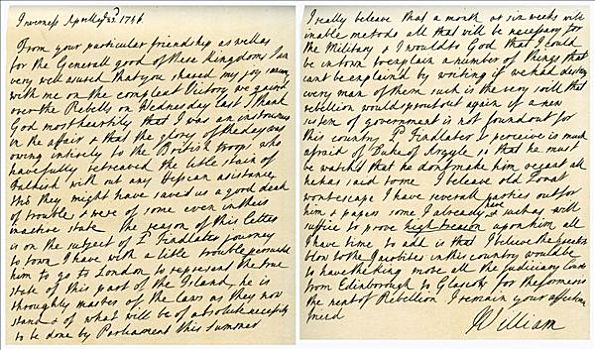 Inverness April ye 23d 1746.
From your particular friendship as well as
for the Generall good of these Kingdoms I am
very well assured that you shared my joy
with me on the compleat Victory we gained
over the Rebells on Wednesday last I thank
God most heartily that I was an instrument
in the affair & that the glory of the day was
owing intirely to the British troops who
have fully retreaved the little stain of
Falkirk with out any Hessian assistance
tho they might have saved us a good deal
of trouble & were of some even in their
inactive state The reason of this letter
is on the subject of Ld Findlaters journey
to town I have with a little trouble persuaded
him to go to London to represent the true
state of this part of the Island, he is
throughly master of the laws as they now
stand & of what will be of absolute necessity
to be done by Parliament this summer
I really beleave that a month or six weeks will
inable me to do all that will be necessary for
the Military & I would to God that I could
be in town to explain a number of things that
cant be explaind by writing if we had destroy
every man of them such is the very soil that
rebellion would sprout out again if a new
system of government is not found out for
this country Ld Findlater I perceive is much
afraid of Duke of Argyle so that he must
be watch'd that he dont make him recant all
he has said to me I beleave old Lovat
wont escape I have severall parties out for
him & papers some I already have & such as will
suffice to prove high treason upon him all
I have time to add is that I beleive the greatest
blow to the Jacobites in this country would be
to have the king move all the Judiciary Courts
from Edinborough to Glascow for the former is
the nest of Rebellion I remain your affectionate
friend
William